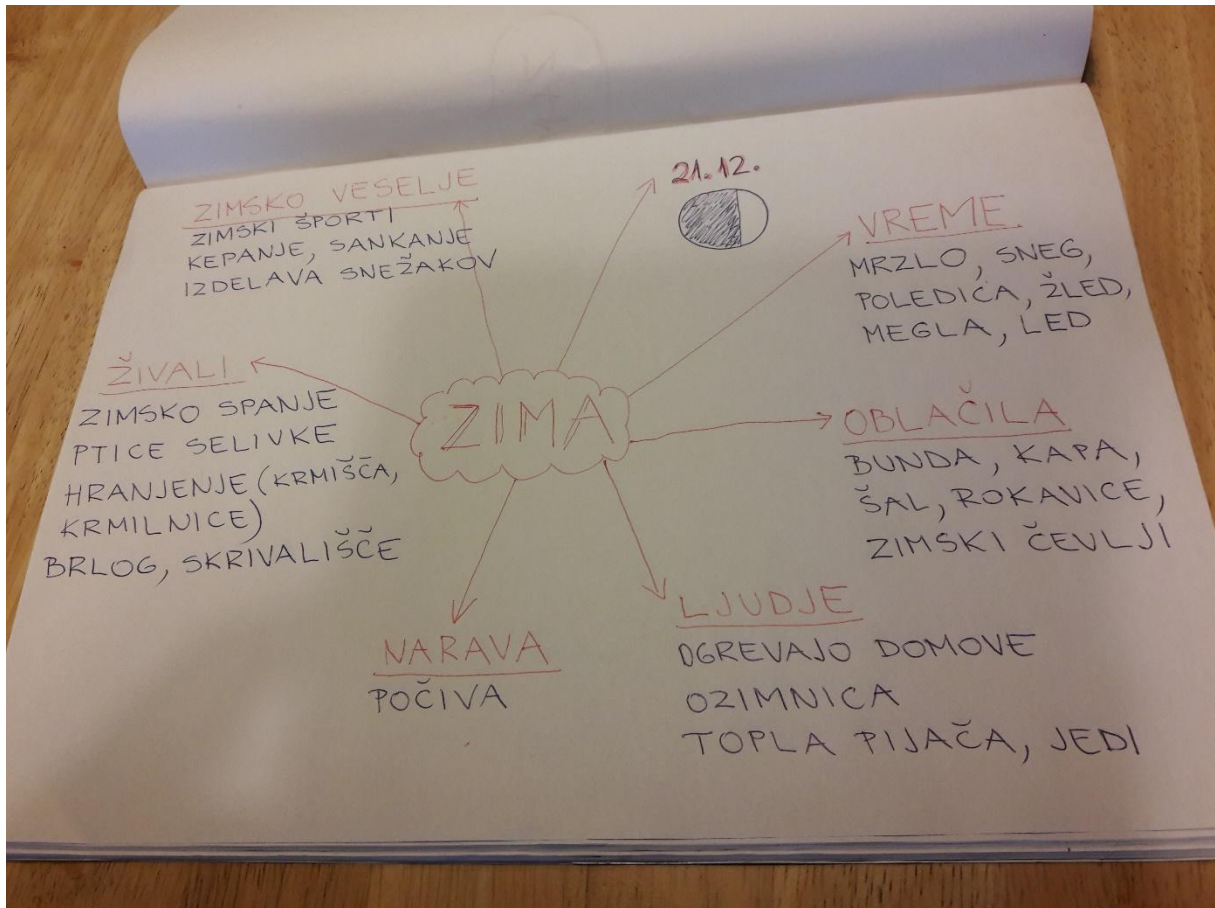 ZIMSKO VESELJE
ZIMSKI ŠPORTI
KEPANJE, SANKANJE
IZDELAVA SNEŽAKOV
21.12.
VREME
MRZLO, SNEG,
POLEDICA, ŽLED,
MEGLA, LED
ŽIVALI
ZIMSKO SPANJE
PTICE SELIVKE
HRANJENJE (KRMIŠČA,
KRMILNICE)
BRLOG, SKRIVALIŠČE
ZIMA
OBLAČILA
BUNDA, KAPA,
ŠAL, ROKAVICE,
ZIMSKI ČEVLJI
NARAVA
POČIVA
LJUDJE
OGREVAJO DOMOVE
OZIMNICA
TOPLA PIJAČA, JEDI